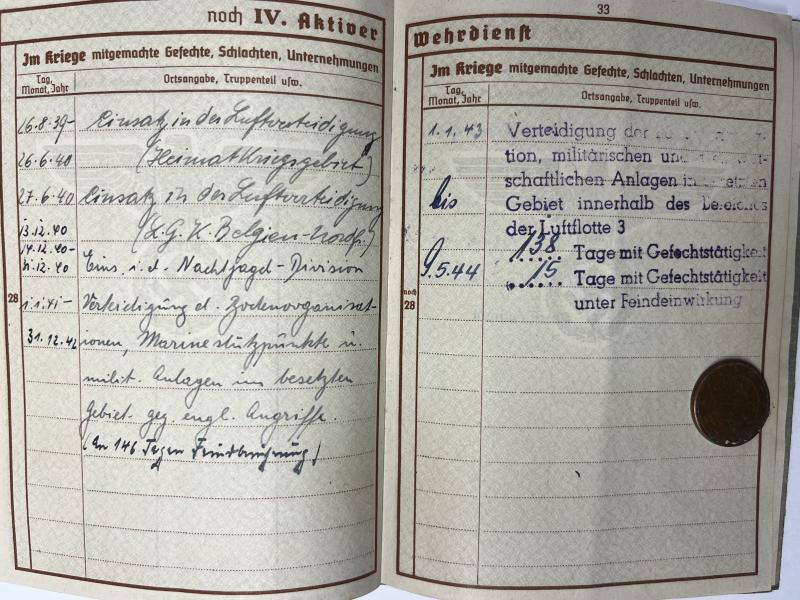 noch IV. Aktiver
Im Kriege mitgemachte Gefechte, Schlachten, Unternehmungen
Tag, Monat, Jahr
Ortsangabe, Truppenteil usw.
26.8.39- Einsatz in der Luftverteidigung
26.6.40 (Heimatkriegsgebiet)
27.6.40 Einsatz in der Luftverteidigung
13.12.40 (L.G.K. Belgien-Nordfr.)
14.12.40-
31.12.40 Eins. i. d. Nachtjagd-Division
28
1.1.41- Verteidigung d. Bodenorganisat-
31.12.42 ionen, Marinestützpunkte u.
milit. Anlagen im besetzten
Gebiet geg. engl. Angriffe.
(An 146 Tagen Feindberührung)
33
Wehrdienst
Im Kriege mitgemachte Gefechte, Schlachten, Unternehmungen
Tag, Monat, Jahr
Ortsangabe, Truppenteil usw.
1.1.43 Verteidigung der
tion, militärischen und
schaftlichen Anlagen in
bis Gebiet innerhalb des Bereiches
der Luftflotte 3
138 Tage mit Gefechtstätigkeit
9.5.44 15 Tage mit Gefechtstätigkeit
noch 28
unter Feindeinwirkung